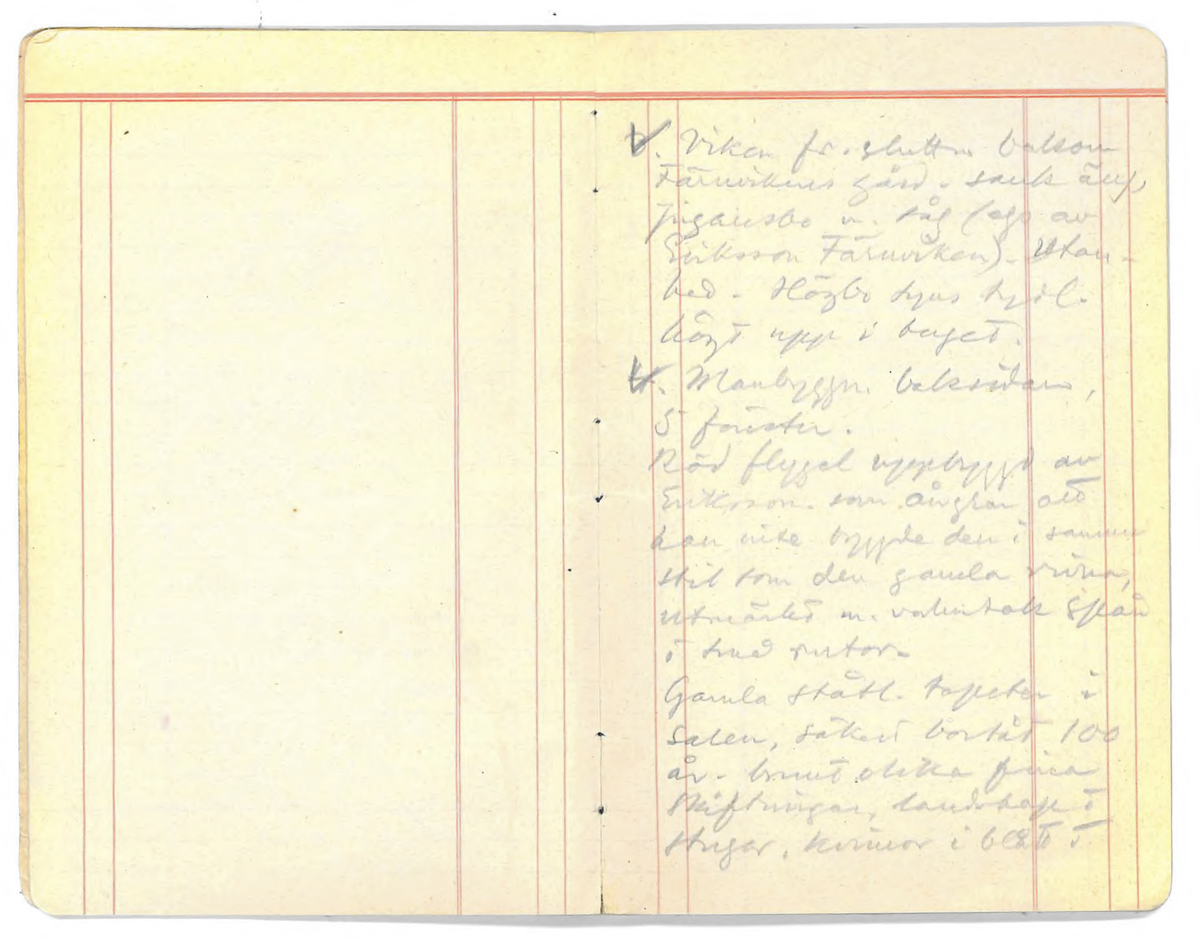 V. Viken fr. slutten bakom
Färnvikens gård. sank äng,
m. såg (ägs av
Eriksson Färnviken). Utan-
hed. Högbo syns tydl.
högt upp i berget.
V. Manbyggn. baksidan,
5 fönster.
Röd flygel uppbyggd av
Eriksson. som ångrar att
han inte byggde den i samma
stil som den gamla rivna,
utmärkt m. valmtak
i små rutor.
Gamla ståtl. tapeter i
salen, säkert bortåt 100
år. brunt olika fina
skiftningar, landskap i
stugor, kvinnor i blått i